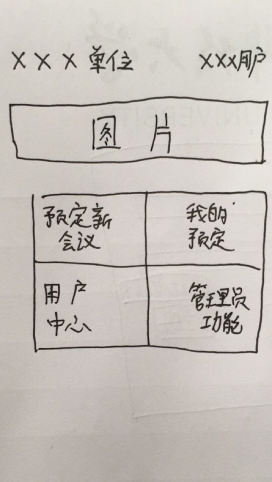 ×××单位 ×××用户
图片
预定新
会议
我的
预定
用户
中心
管理员
功能